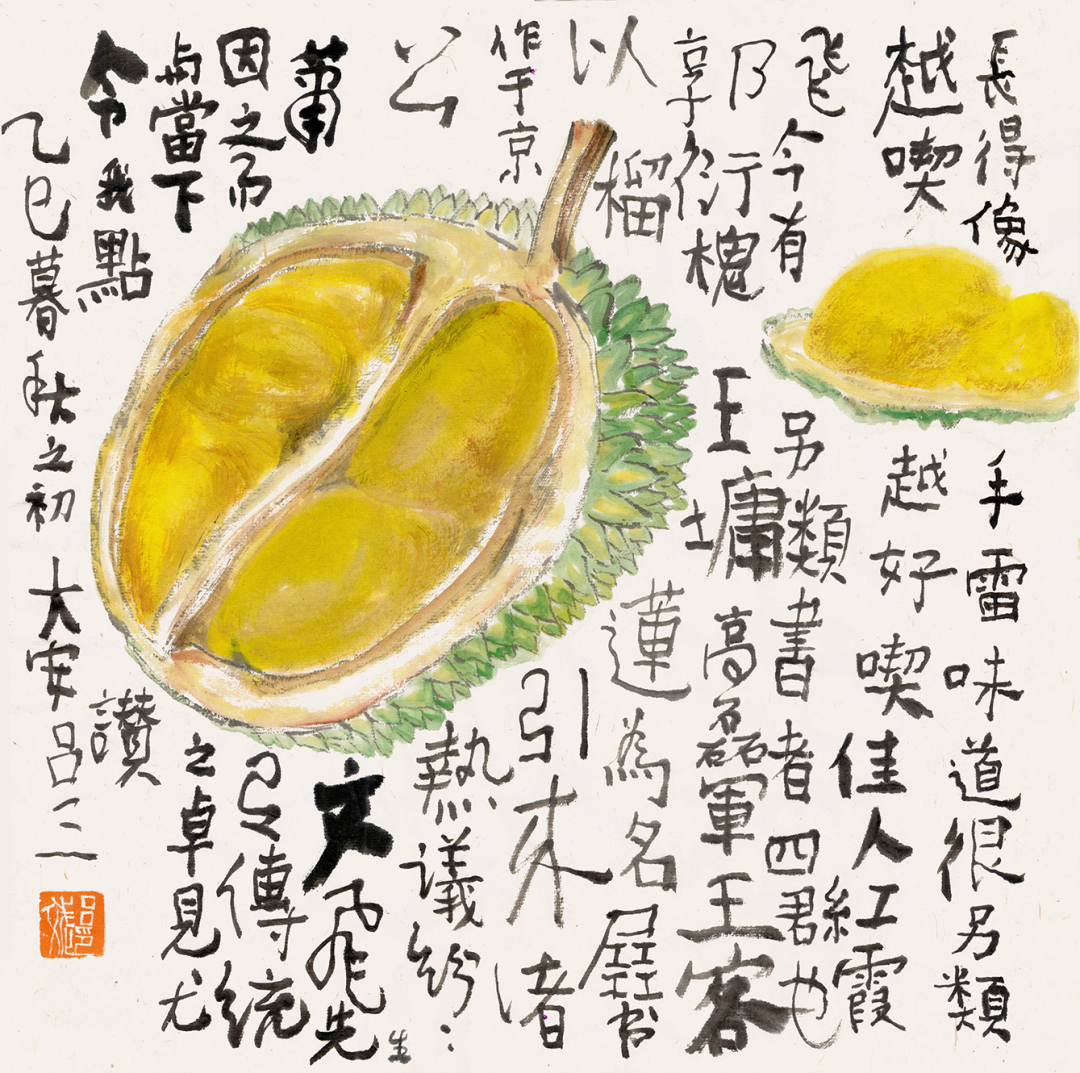 長得像
手雷味道很另類
越喫
越好喫佳人紅霞
飛今有
另類書者四君也
乃行槐
王墉高磊軍王客
以榴
蓮為名展书
作于京
引来诸
公
熱議紛:
肅
文飛先生
因之而
傳統
与當下
之卓見尤
令我點
讚
乙巳暮秋之初 大安呂三